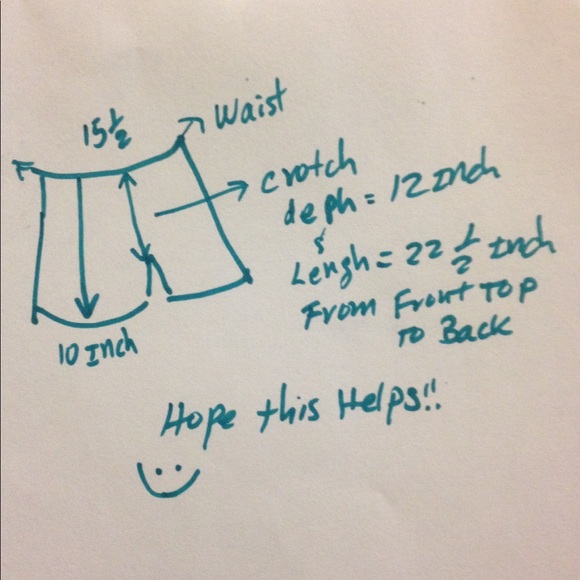 15 1/2
Waist
crotch
deph = 12 Inch
&
Lengh = 22 1/2 Inch
From Front Top
to Back
10 Inch
Hope this Helps!!